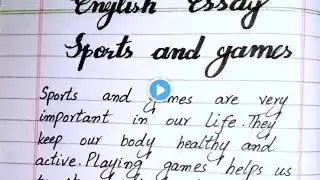 English Essay
Sports and games
Sports and games are very
important in our life. They
keep our body healthy and
active. Playing games helps us